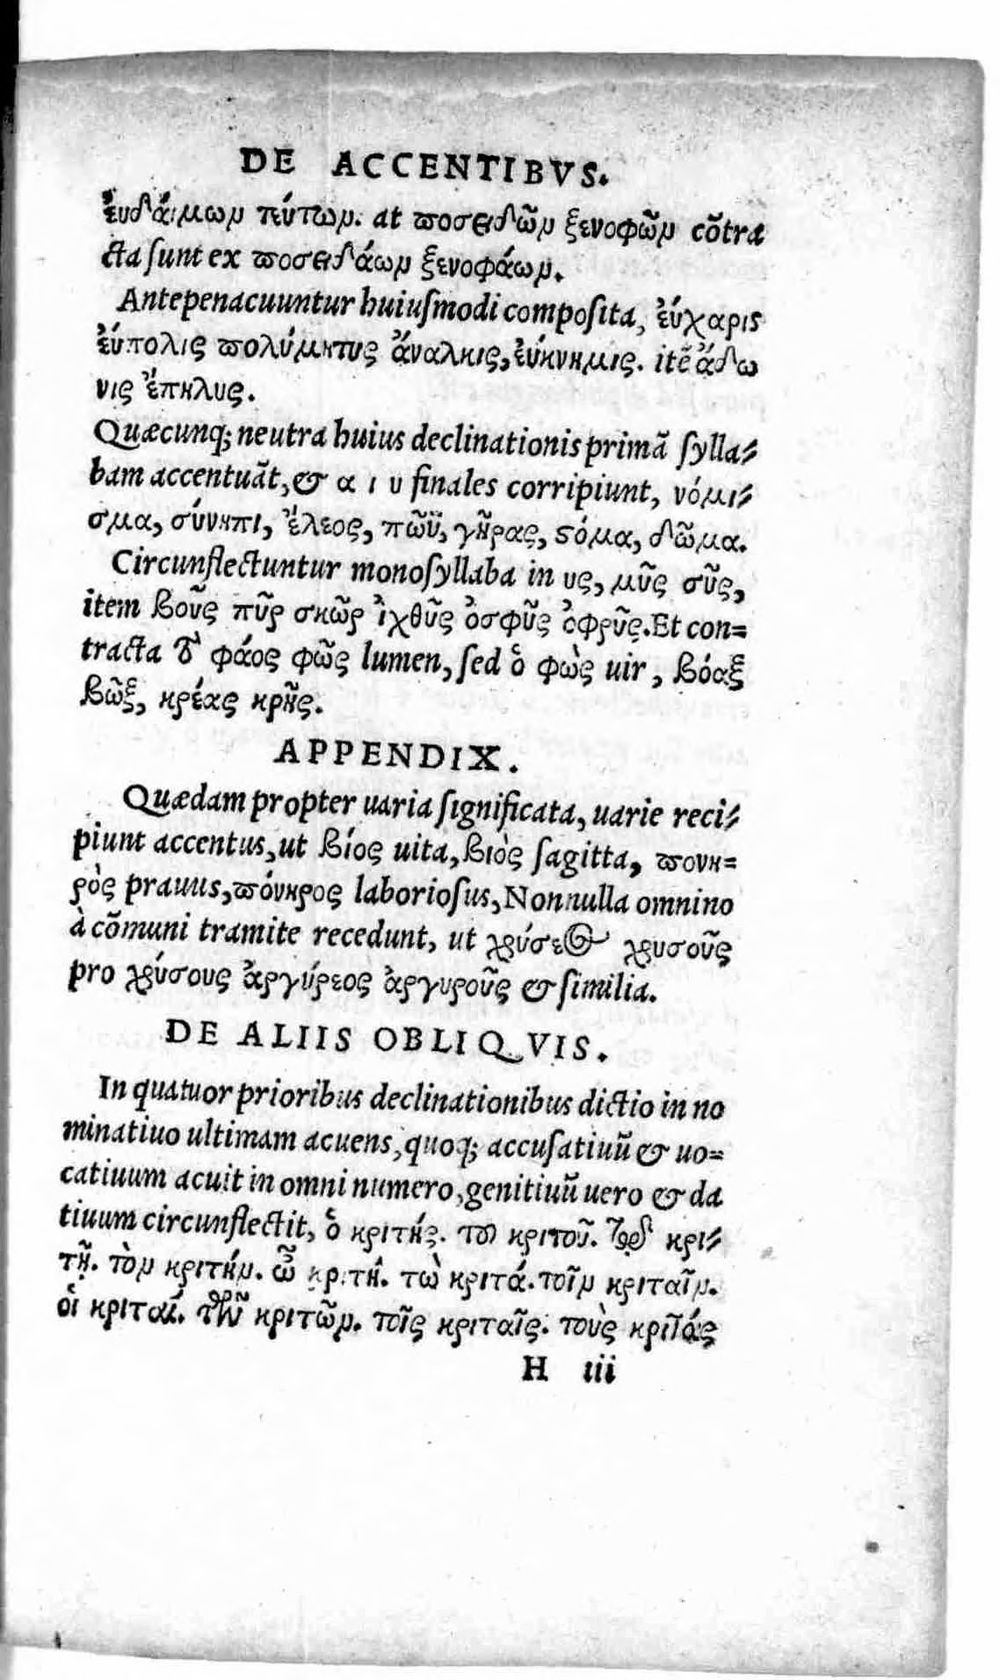 DE ACCENTIBVS.
ἐυδάιμων πέπων. at ποσειδῶν ξενοφῶν cõtra
cta ſunt ex ποσειδάων ξενοφάων.
Antepenacuuntur huiuſmodi compoſita, ἐύχαρις
ἐύπολις πολύμητις ἄναλκις, ἐύκνημις. itẽ ἄδω
νις ἔπηλυς.
Quæcunq; neutra huius declinationis primã ſylla-
bam accentuãt, & α ι υ finales corripiunt, νόμι-
σμα, σύνηπι, ἔλεος, πῶϋ, γῆρας, στόμα, δῶμα.
Circunflectuntur monoſyllaba in υς, μῦς σῦς,
item βοῦς πῦρ σκῶρ ἰχθῦς ὀσφῦς ὀφρῦς. Et con-
tracta τὸ φάος φῶς lumen, ſed ὁ φὼς uir, βόαξ
βῶξ, κρέας κρῆς.
APPENDIX.
Quædam propter uaria ſignificata, uarie reci-
piunt accentus, ut βίος uita, βιὸς ſagitta, πονη-
ρὸς prauus, πόνηρος laborioſus, Nonnulla omnino
à cõmuni tramite recedunt, ut χρύσεος χρυσοῦς
pro χρύσους ἀργύρεος ἀργυροῦς & ſimilia.
DE ALIIS OBLIQVIS.
In quatuor prioribus declinationibus dictio in no
minatiuo ultimam acuens, quoq; accuſatiuũ & uo-
catiuum acuit in omni numero, genitiuũ uero & da
tiuum circunflectit, ὁ κριτής. τοῦ κριτοῦ. τῷ κρι-
τῇ. τὸν κριτήν. ὦ κριτά. τὼ κριτά. τοῖν κριταῖν.
οἱ κριταί. τῶν κριτῶν. τοῖς κριταῖς. τοὺς κριτάς
H iii